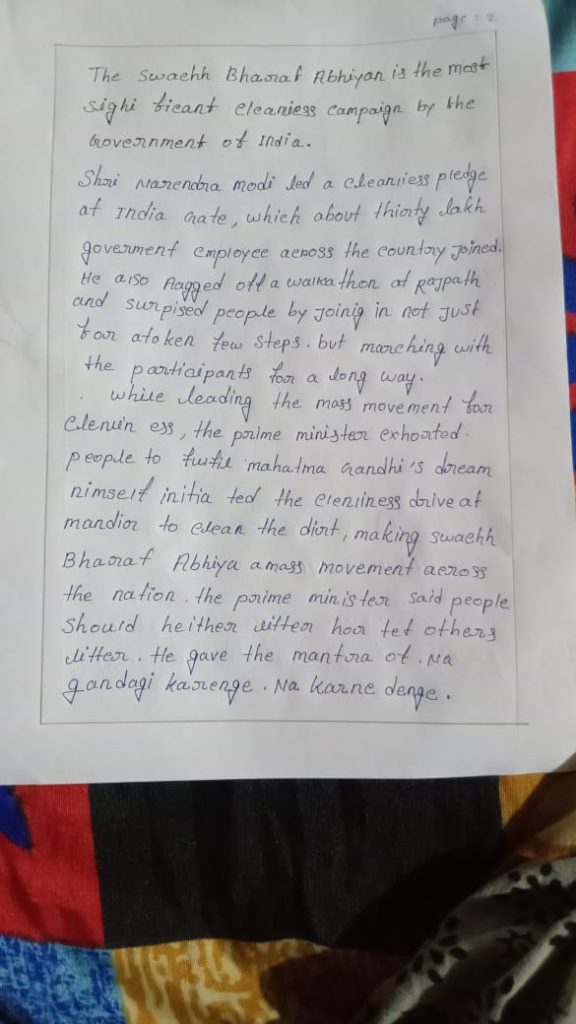 page : 2
The swachh Bharat Abhiyan is the most
sighi ficant cleaniess campaign by the
Government of India.
Shri Narendra modi led a cleanliess pledge
at India Gate, which about thirty lakh
goverment employee across the country joined.
He also flagged off a walkathon at Rajpath
and surpised people by joinig in not just
for atoken few steps. but marching with
the participants for a long way.
while leading the mass movement for
clenlin ess, the prime minister exhorted.
people to fulfil mahatma Gandhi's dream
himself initia ted the clenliness drive at
mandir to clean the dirt, making swachh
Bharat Abhiya a mass movement across
the nation. the prime minister said people
should neither litter hor let others
litter. He gave the mantra of. Na
gandagi karenge. Na karne denge.